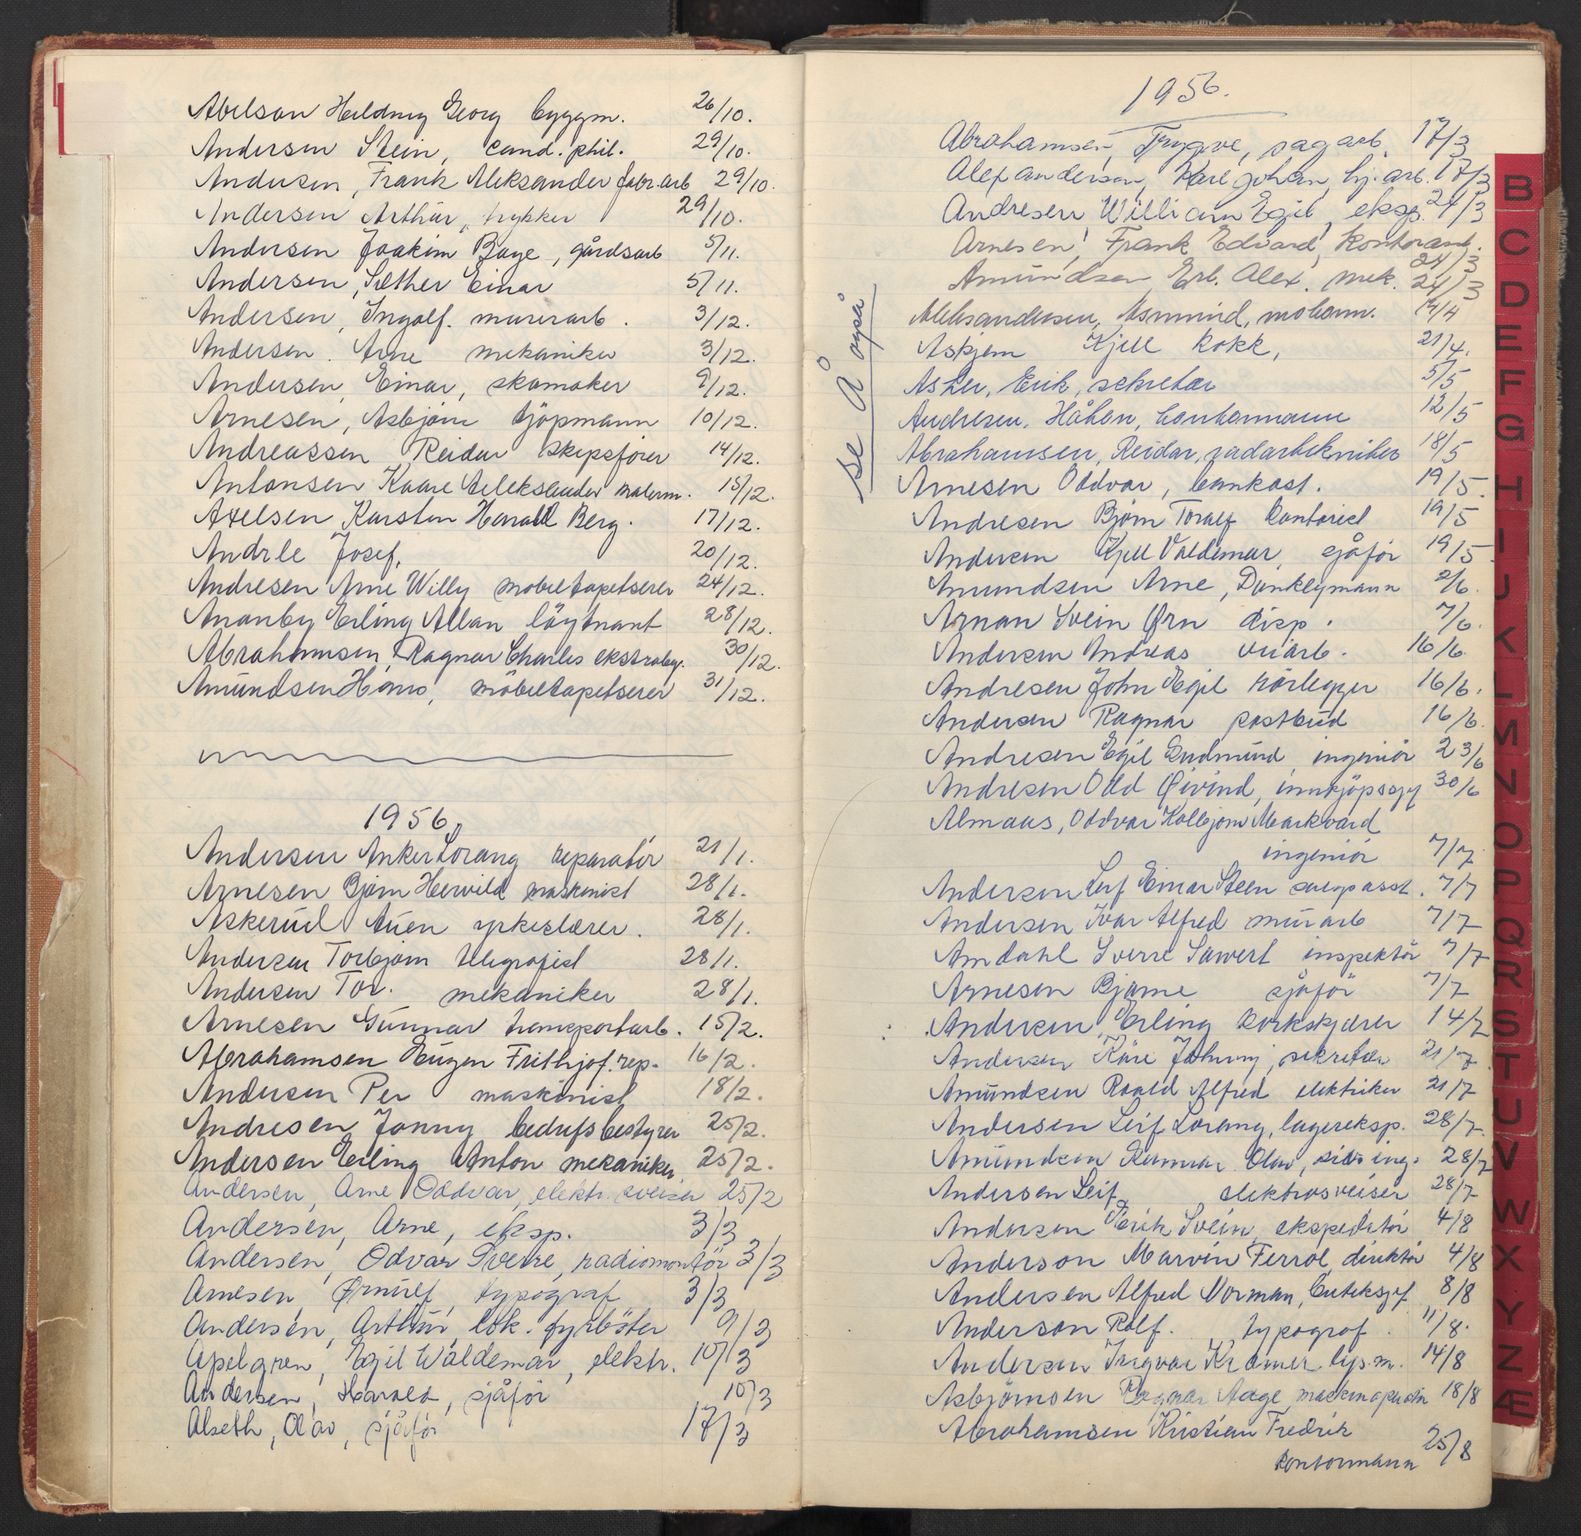 Abelson Heldmy Georg byggm. 26/10.
Andersen Stein, cand. phil. 29/10.
Andersen, Frank Aleksander fabr.arb 29/10.
Andersen Arthur, trykker 29/10.
Andersen Joakim Boye, gårdsarb 5/11.
Andersen, Sether Einar 5/11.
Andersen, Ingolf. murerarb. 3/12.
Andersen. Arne mekaniker 3/12.
Andersen, Einar, skomaker 9/12.
Arnesen, Asbjørn kjöpmann 10/12.
Andreassen Reidar skipsförer 14/12.
Antonsen Kaare Aleksander malerm. 15/12.
Axelsen Karsten Harald Berg. 17/12.
Andrle Josef, 20/12.
Andresen Arne Willy möbeltapetserer 24/12.
Ananby Erling Allan löytnant 28/12.
Abrahamsen, Ragnar Charles ekstrabg. 30/12.
Amundsen Hans, möbeltapetserer 31/12.
1956
Andersen Anker Lorang reparatör 21/1.
Arnesen Bjørn Hervild maskinist 28/1.
Askerud Auen yrkeslærer. 28/1.
Andersen Torbjørn telegrafist 28/1.
Andersen Tor. mekaniker 28/1.
Arnesen Gunnar transportarb. 15/2.
Abrahamsen Eugen Frithjof. rep. 16/2.
Andersen Per maskinist 18/2.
Andresen Jonny bedrifsbestyrer 25/2.
Andersen Erling Anton mekaniker 25/2.
Andersen, Arne Oddvar, elektr. sveiser 25/2
Andersen, Arne, eksp. 3/3
Andersen, Odvar Sverre, radiomontör 3/3
Arnesen, Ørnulf, typograf 3/3
Andersen, Arthur, lok. fyrböter 9/3
Apelgren, Egil Waldemar, elektr. 10/3
Andersen, Harald, sjåför 10/3
Alseth, Olav, sjåför 17/3
1956.
Abrahamsen, Trygve, sagarb. 17/3
Alexandersen, Karl Johan, hj.arb. 17/3
Andresen, William Egil, eksp. 24/3
Arnesen, Frank Edvard, kontorarb. 24/3
Amundsen, Erl. Alex. mek. 24/3
Aleksandersen, Asmund, mobarm. 14/4
Askjem Kjell kokk, 21/4.
Asker, Erik, sekretær 5/5
Andresen, Håkon, kontormann 12/5
Abrahamsen, Reidar, radartekniker 18/5
Arnesen Oddvar, bankass. 19/5.
Andresen Bjørn Toralf Kontorist 19/5
Andersen Kjell Valdemar, sjåför 19/5.
Amundsen Arne, Dunkleymann 2/6.
Arman Svein Ørn disp. 7/6.
Andersen Andreas veiarb. 16/6.
Andresen John Egil rörlegger 16/6.
Andersen Ragnar postbud 16/6.
Andresen Egil Gudmund, ingeniör 23/6
Andresen Odd Øivind, innkjöpssjef 30/6
Almaas, Oddvar Kolbjørn Markvard
ingeniör 7/7
Andersen Leif Einar Steen salgsasst. 7/7
Andersen Ivar Alfred murarb 7/7
Amdahl Sverre Sawert inspektör 7/7
Arnesen Bjarne sjåför 7/7
Andersen, Erling korkskjærer 14/7
Andersen Kåre Johnny, sekretær 21/7
Amundsen Roald Alfred elektriker 21/7
Andersen Leif Lorang, lagereksp. 28/7
Amundsen Gunnar Olav, siv. ing. 28/7
Andersen Leif, elektrosveiser 28/7
Andersen Erik Svein, ekspeditör 4/8
Anderson Marvin Ferrol, direktör 4/8
Andersen Alfred Norman, butikksjef 8/8
Anderson Rolf. typograf. 11/8.
Andersen Ingvar Kramer lys.m. 14/8
Asbjörnsen Ragnar Aage maskinoperatör 18/8
Abrahamsen Kristian Fredrik
kontormann 25/8
se Å også
B
C
D
E
F
G
H
I
J
K
L
M
N
O
P
Q
R
S
T
U
V
W
X
Y
Z
Æ